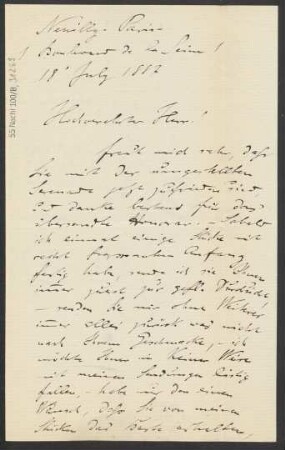 Neuilly-Paris
1 Boulevard de la Seine 1
18t July 1882
Hochverehrter Herr!
freut mich sehr, daß
Sie mit der umgestellten
Serenade jetzt zufrieden sind
danke bestens für das
übersandte Honorar. – Sobald
ich einmal einige Stücke mit
recht Anfang
fertig habe, sende ich sie Ihnen
immer zuerst zur gefl. Durchsicht
– senden Sie mir ohne Weiteres
immer alles zurück was nicht
nach Ihrem Geschmacke, – ich
möchte Ihnen in keiner Weise
mit meinen Sendungen lästig
fallen, – habe nur den einen
Wunsch, daß Sie von meinen
Stücken das Beste erhalten,